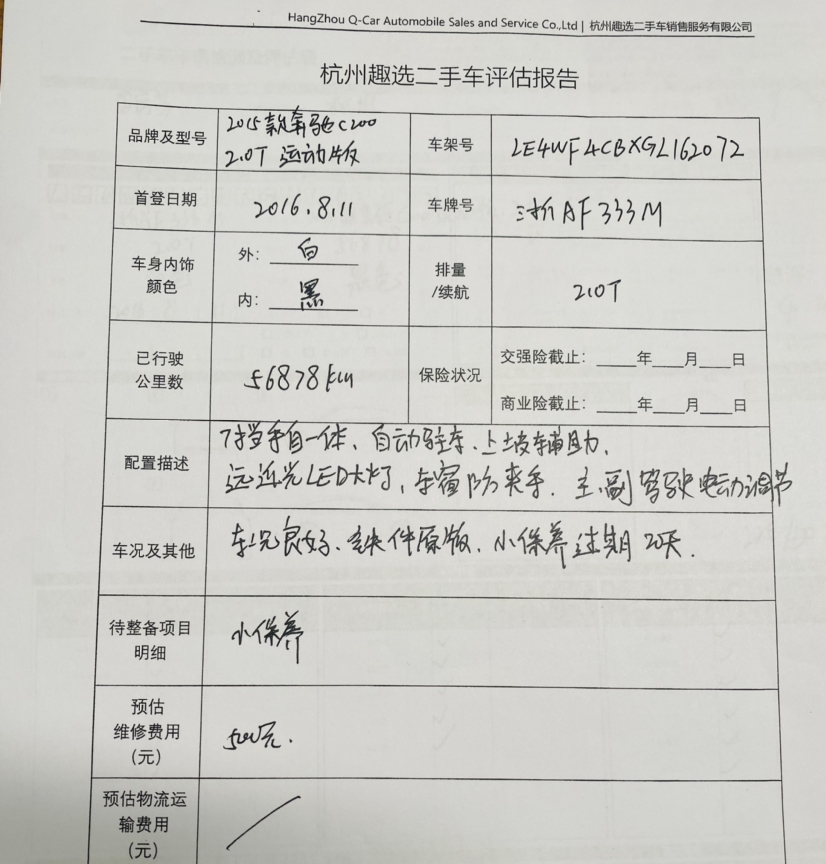 HangZhou Q-Car Automobile Sales and Service Co.,Ltd | 杭州趣选二手车销售服务有限公司
杭州趣选二手车评估报告
品牌及型号
2015款奔驰C200
2.0T 运动版
车架号
LE4WF4CBXGL162072
首登日期
2016.8.11
车牌号
浙AF333M
车身内饰
颜色
外: 白
内: 黑
排量
/续航
2.0T
已行驶
公里数
56878km
保险状况
交强险截止: 年 月 日
商业险截止: 年 月 日
配置描述
7挡手自一体、自动驻车、上坡辅助、
远近光LED大灯、车窗防夹手、主、副驾驶电动调节
车况及其他
车况良好、全铁件原版、小保养过期20天.
待整备项目
明细
小保养
预估
维修费用
(元)
500元.
预估物流运
输费用
(元)